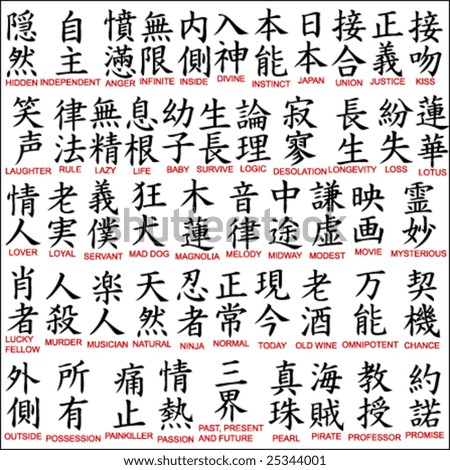 隠然
HIDDEN
自主
INDEPENDENT
憤懣
ANGER
無限
INFINITE
内側
INSIDE
入神
DIVINE
本能
INSTINCT
日本
JAPAN
接合
UNION
正義
JUSTICE
接吻
KISS
笑声
LAUGHTER
律法
RULE
無精
LAZY
息根
LIFE
幼子
BABY
生長
SURVIVE
論理
LOGIC
寂寥
DESOLATION
長生
LONGEVITY
紛失
LOSS
蓮華
LOTUS
情人
LOVER
老実
LOYAL
義僕
SERVANT
狂犬
MAD DOG
木蓮
MAGNOLIA
音律
MELODY
中途
MIDWAY
謙虚
MODEST
映画
MOVIE
霊妙
MYSTERIOUS
肖者
LUCKY
FELLOW
人殺
MURDER
楽人
MUSICIAN
天然
NATURAL
忍者
NINJA
正常
NORMAL
現今
TODAY
老酒
OLD WINE
万能
OMNIPOTENT
契機
CHANCE
外側
OUTSIDE
所有
POSSESSION
痛止
PAINKILLER
情熱
PASSION
三界
PAST, PRESENT
AND FUTURE
真珠
PEARL
海賊
PIRATE
教授
PROFESSOR
約諾
PROMISE
shutterstock · 25344001